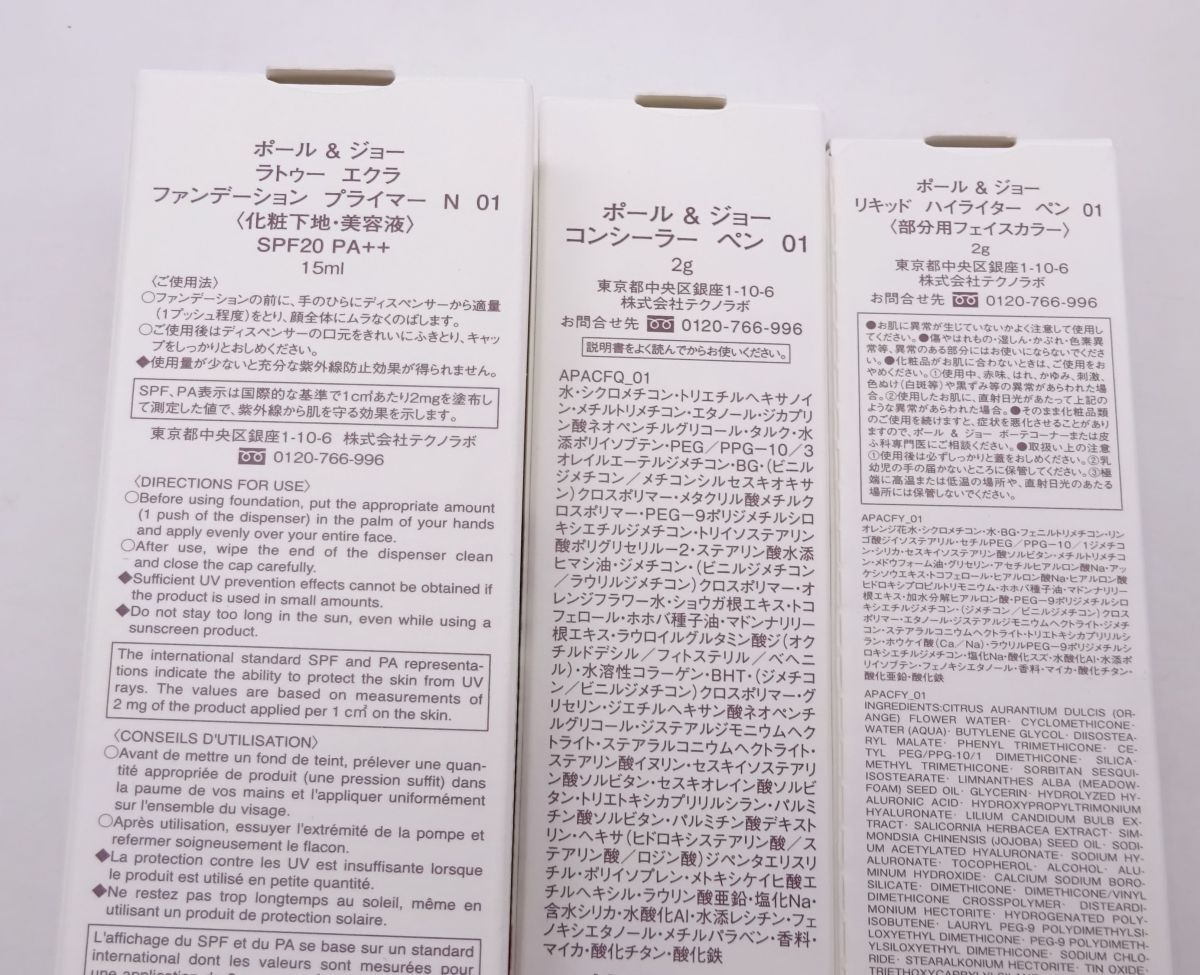 ポール & ジョー
ラトゥー エクラ
ファンデーション プライマー N 01
〈化粧下地・美容液〉
SPF20 PA++
15ml
〈ご使用法〉
○ファンデーションの前に、手のひらにディスペンサーから適量
(1プッシュ程度)をとり、顔全体にムラなくのばします。
○ご使用後はディスペンサーの口元をきれいにふきとり、キャッ
プをしっかりとおしめください。
◆使用量が少ないと充分な紫外線防止効果が得られません。
SPF、PA表示は国際的な基準で1c㎡あたり2mgを塗布し
て測定した値で、紫外線から肌を守る効果を示します。
東京都中央区銀座1-10-6 株式会社テクノラボ
0120-766-996
〈DIRECTIONS FOR USE〉
○Before using foundation, put the appropriate amount
(1 push of the dispenser) in the palm of your hands
and apply evenly over your entire face.
○After use, wipe the end of the dispenser clean
and close the cap carefully.
◆Sufficient UV prevention effects cannot be obtained if
the product is used in small amounts.
◆Do not stay too long in the sun, even while using a
sunscreen product.
The international standard SPF and PA representa-
tions indicate the ability to protect the skin from UV
rays. The values are based on measurements of
2 mg of the product applied per 1 c㎡ on the skin.
〈CONSEILS D'UTILISATION〉
○Avant de mettre un fond de teint, prélever une quan-
tité appropriée de produit (une pression suffit) dans
la paume de vos mains et l'appliquer uniformément
sur l'ensemble du visage.
○Après utilisation, essuyer l'extrémité de la pompe et
refermer soigneusement le flacon.
◆La protection contre les UV est insuffisante lorsque
le produit est utilisé en petite quantité.
◆Ne restez pas trop longtemps au soleil, même en
utilisant un produit de protection solaire.
L'affichage du SPF et du PA se base sur un standard
international dont les valeurs sont mesurées pour
ポール & ジョー
コンシーラー ペン 01
2g
東京都中央区銀座1-10-6
株式会社テクノラボ
お問合せ先 0120-766-996
説明書をよく読んでからお使いください。
APACFQ_01
水・シクロメチコン・トリエチルヘキサノイ
ン・メチルトリメチコン・エタノール・ジカプリ
ン酸ネオペンチルグリコール・タルク・水
添ポリイソブテン・PEG/PPG-10/3
オレイルエーテルジメチコン・BG・(ビニル
ジメチコン/メチコンシルセスキオキサ
ン)クロスポリマー・メタクリル酸メチルク
ロスポリマー・PEG-9ポリジメチルシロ
キシエチルジメチコン・トリイソステアリン
酸ポリグリセリル-2・ステアリン酸水添
ヒマシ油・ジメチコン・(ビニルジメチコン
/ラウリルジメチコン)クロスポリマー・オ
レンジフラワー水・ショウガ根エキス・トコ
フェロール・ホホバ種子油・マドンナリリー
根エキス・ラウロイルグルタミン酸ジ(オク
チルドデシル/フィトステリル/ベヘニ
ル)・水溶性コラーゲン・BHT・(ジメチコ
ン/ビニルジメチコン)クロスポリマー・グ
リセリン・ジエチルヘキサン酸ネオペンチ
ルグリコール・ジステアルジモニウムヘク
トライト・ステアラルコニウムヘクトライト・
ステアリン酸イヌリン・セスキイソステアリ
ン酸ソルビタン・セスキオレイン酸ソルビ
タン・トリエトキシカプリリルシラン・パルミ
チン酸ソルビタン・パルミチン酸デキスト
リン・ヘキサ(ヒドロキシステアリン酸/ス
テアリン酸/ロジン酸)ジペンタエリスリ
チル・ポリイソプレン・メトキシケイヒ酸エ
チルヘキシル・ラウリン酸亜鉛・塩化Na・
含水シリカ・水酸化Al・水添レシチン・フェ
ノキシエタノール・メチルパラベン・香料・
マイカ・酸化チタン・酸化鉄
ポール & ジョー
リキッド ハイライター ペン 01
〈部分用フェイスカラー〉
2g
東京都中央区銀座1-10-6
株式会社テクノラボ
お問合せ先 0120-766-996
●お肌に異常が生じていないかよく注意して使用し
てください。●傷やはれもの・湿しん・かぶれ・色素異
常等、異常のある部分にはお使いにならないでくださ
い。●化粧品がお肌に合わないときは、ご使用をお
やめください。①使用中、赤味、はれ、かゆみ、刺激、
色ぬけ(白斑等)や黒ずみ等の異常があらわれた場
合。②使用したお肌に、直射日光があたって上記の
ような異常があらわれた場合。●そのまま化粧品類
のご使用を続けますと、症状を悪化させることがあり
ますので、ポール & ジョー ボーテコーナーまたは皮
ふ科専門医にご相談ください。●取扱い上の注意
①使用後は必ずしっかりと蓋をおしめください。②乳
幼児の手の届かないところに保管してください。③極
端に高温または低温の場所や、直射日光のあたる
場所には保管しないでください。
APACFY_01
オレンジ花水・シクロメチコン・水・BG・フェニルトリメチコン・リン
ゴ酸ジイソステアリル・セチルPEG/PPG-10/1ジメチコ
ン・シリカ・セスキイソステアリン酸ソルビタン・メチルトリメチコ
ン・メドウフォーム油・グリセリン・アセチルヒアルロン酸Na・アッ
ケシソウエキス・トコフェロール・ヒアルロン酸Na・ヒアルロン酸
ヒドロキシプロピルトリモニウム・ホホバ種子油・マドンナリリー
根エキス・加水分解ヒアルロン酸・PEG-9ポリジメチルシロ
キシエチルジメチコン・(ジメチコン/ビニルジメチコン)クロス
ポリマー・エタノール・ジステアルジモニウムヘクトライト・ジメチ
コン・ステアラルコニウムヘクトライト・トリエトキシカプリリルシ
ラン・ホウケイ酸(Ca/Na)・ラウリルPEG-9ポリジメチルシ
ロキシエチルジメチコン・塩化Na・酸化スズ・水酸化Al・水添ポ
リイソブテン・フェノキシエタノール・香料・マイカ・酸化チタン・
酸化亜鉛・酸化鉄
APACFY_01
INGREDIENTS:CITRUS AURANTIUM DULCIS (OR-
ANGE) FLOWER WATER· CYCLOMETHICONE·
WATER (AQUA)· BUTYLENE GLYCOL· DIISOSTEA-
RYL MALATE· PHENYL TRIMETHICONE· CE-
TYL PEG/PPG-10/1 DIMETHICONE· SILICA·
METHYL TRIMETHICONE· SORBITAN SESQUI-
ISOSTEARATE· LIMNANTHES ALBA (MEADOW-
FOAM) SEED OIL· GLYCERIN· HYDROLYZED HY-
ALURONIC ACID· HYDROXYPROPYLTRIMONIUM
HYALURONATE· LILIUM CANDIDUM BULB EX-
TRACT· SALICORNIA HERBACEA EXTRACT· SIM-
MONDSIA CHINENSIS (JOJOBA) SEED OIL· SODI-
UM ACETYLATED HYALURONATE· SODIUM HY-
ALURONATE· TOCOPHEROL· ALCOHOL· ALU-
MINUM HYDROXIDE· CALCIUM SODIUM BORO-
SILICATE· DIMETHICONE· DIMETHICONE/VINYL
DIMETHICONE CROSSPOLYMER· DISTEARDI-
MONIUM HECTORITE· HYDROGENATED POLY-
ISOBUTENE· LAURYL PEG-9 POLYDIMETHYLSI-
LOXYETHYL DIMETHICONE· PEG-9 POLYDIMETH-
YLSILOXYETHYL DIMETHICONE· SODIUM CHLO-
RIDE· STEARALKONIUM HECTORITE· TIN OXIDE·